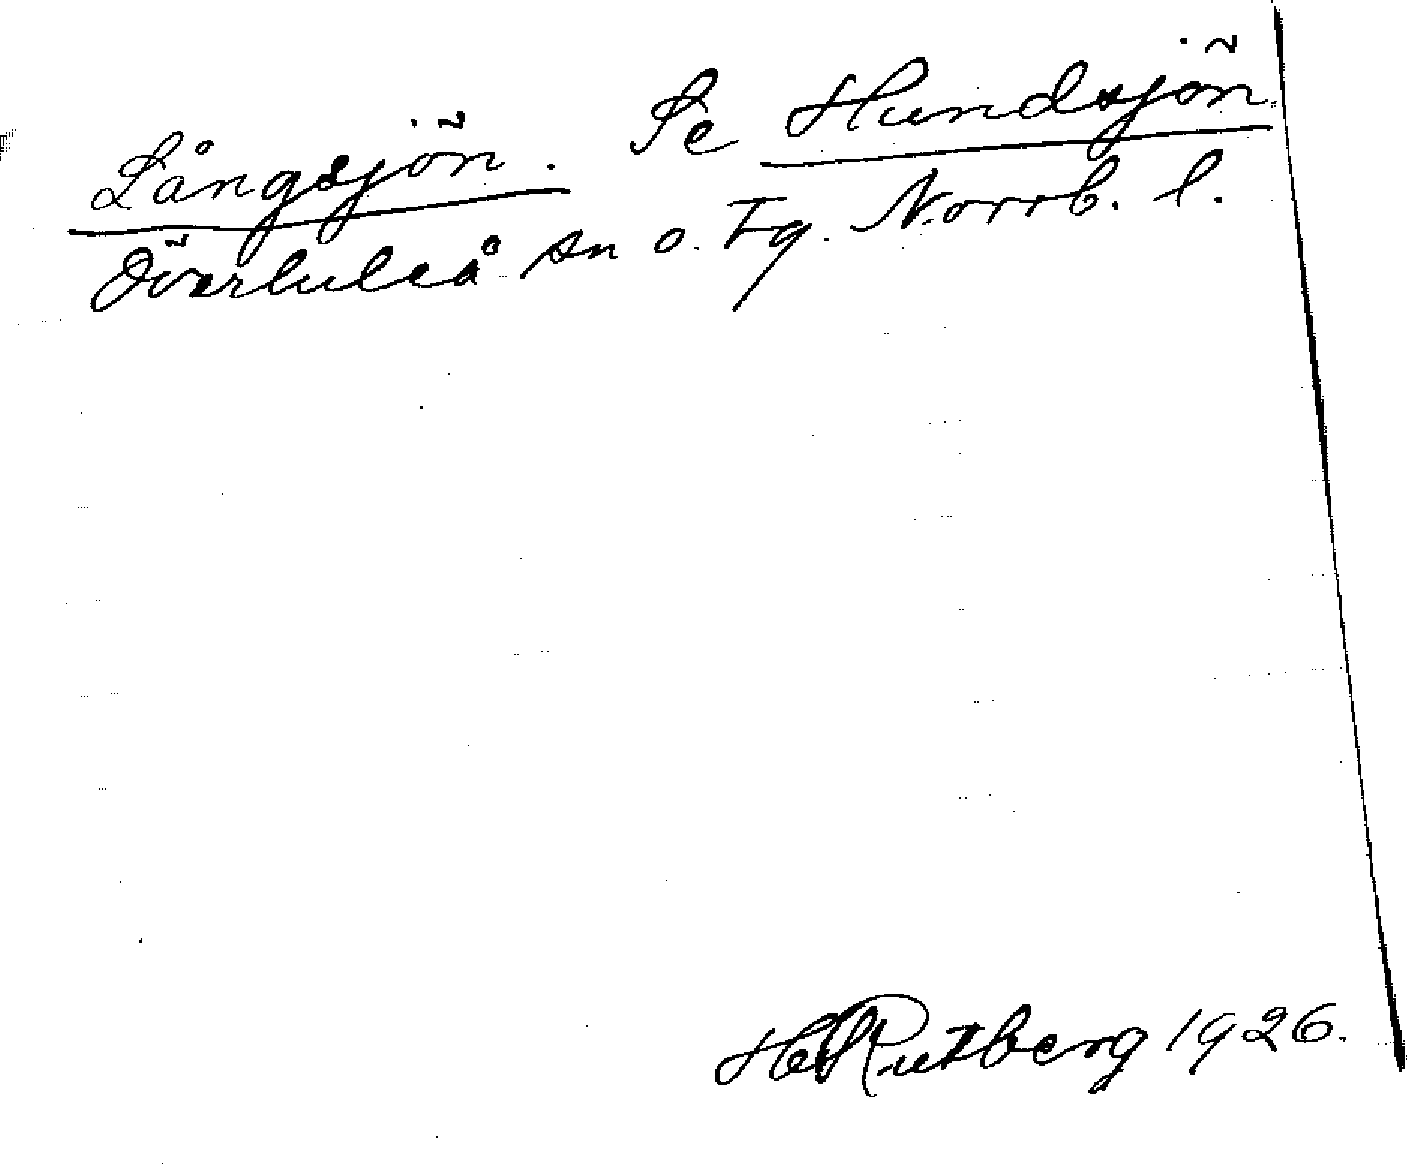 Långsjön. Se Hundsjön.
Överluleå sn o. Tg. Norrb. l.
H Rutberg 1926.